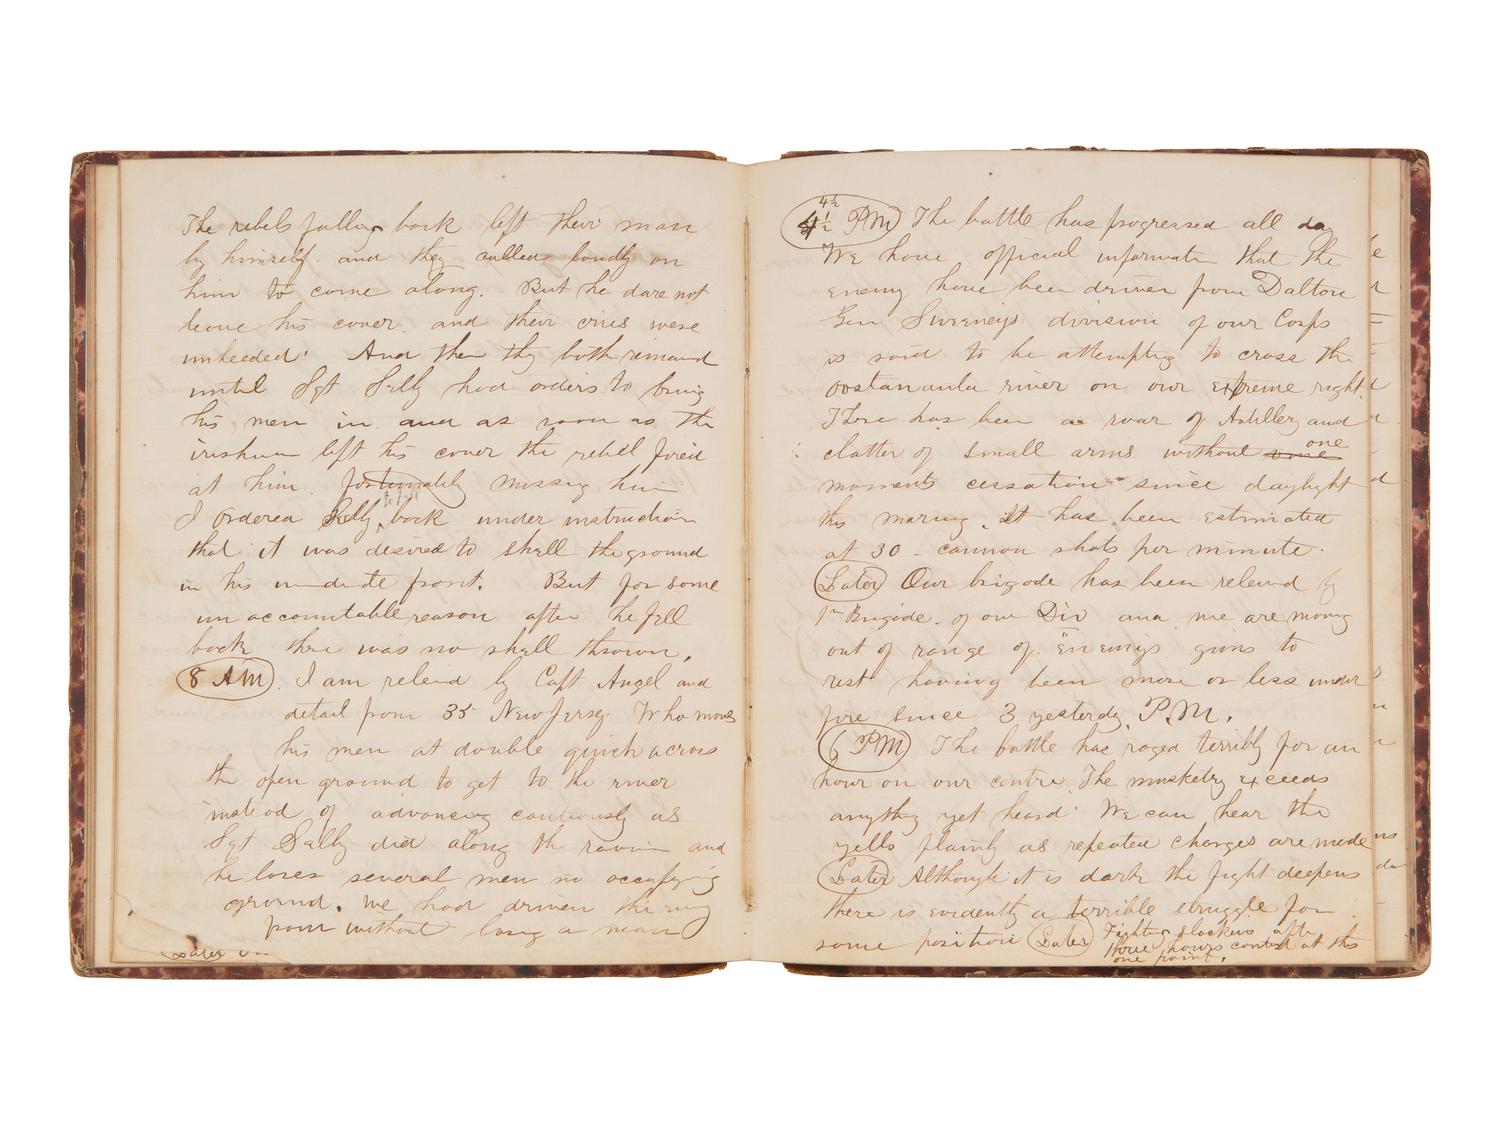 The rebels falling back left their man
by himself. and they called loudly on
him to come along. But he dare not
leave his cover. and their cries were
unheeded. And then they both remaind
until Sgt Selly had orders to bring
his men in. and as soon as the
irishman left his cover the rebel fired
at him. fortunately missing him
I ordered Selly back under instruction
that it was desired to shell the ground
in his imediate front. But for some
unaccountable reason after he fell
back there was no shell thrown.
8 AM. I am relevd by Capt Angel and
detail from 35 New Jersey. Who moves
his men at double quick across
the open ground to get to the river
instead of advancing cautiously as
Sgt Selly did along the ravine and
he loses several men in occupying
ground. We had driven the enmy
from without losing a man
Later
4½ PM The battle has progressed all day
We have official informatn that the
enemy have been driven from Dalton
Gen Sweeneys division of our Corps
is said to be attempting to cross the
oostanaula river on our extreme right.
There has been a roar of Artillery and
clatter of small arms without one
moments cessation since daylight
this morning. It has been estimated
at 30 - cannon shots per minute.
Later Our brigade has been relevd by
1st Brigade. of our Div and we are moving
out of range of Enemys guns to
rest having been more or less under
fire since 3 yesterdy P.M.
6 PM The battle has raged terribly for an
hour on our centre. The musketry exceeds
anything yet heard. We can hear the
yells plainly as repeated charges are made
Later Although it is dark the fight deepens
there is evidently a terrible struggle for
some position Later Fighting slackens after
three hours contest at this
one point.